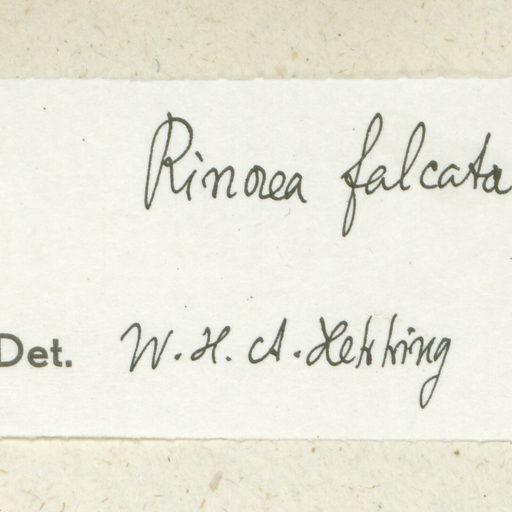 Rinorea falcata
Det. W. H. A. Hekking